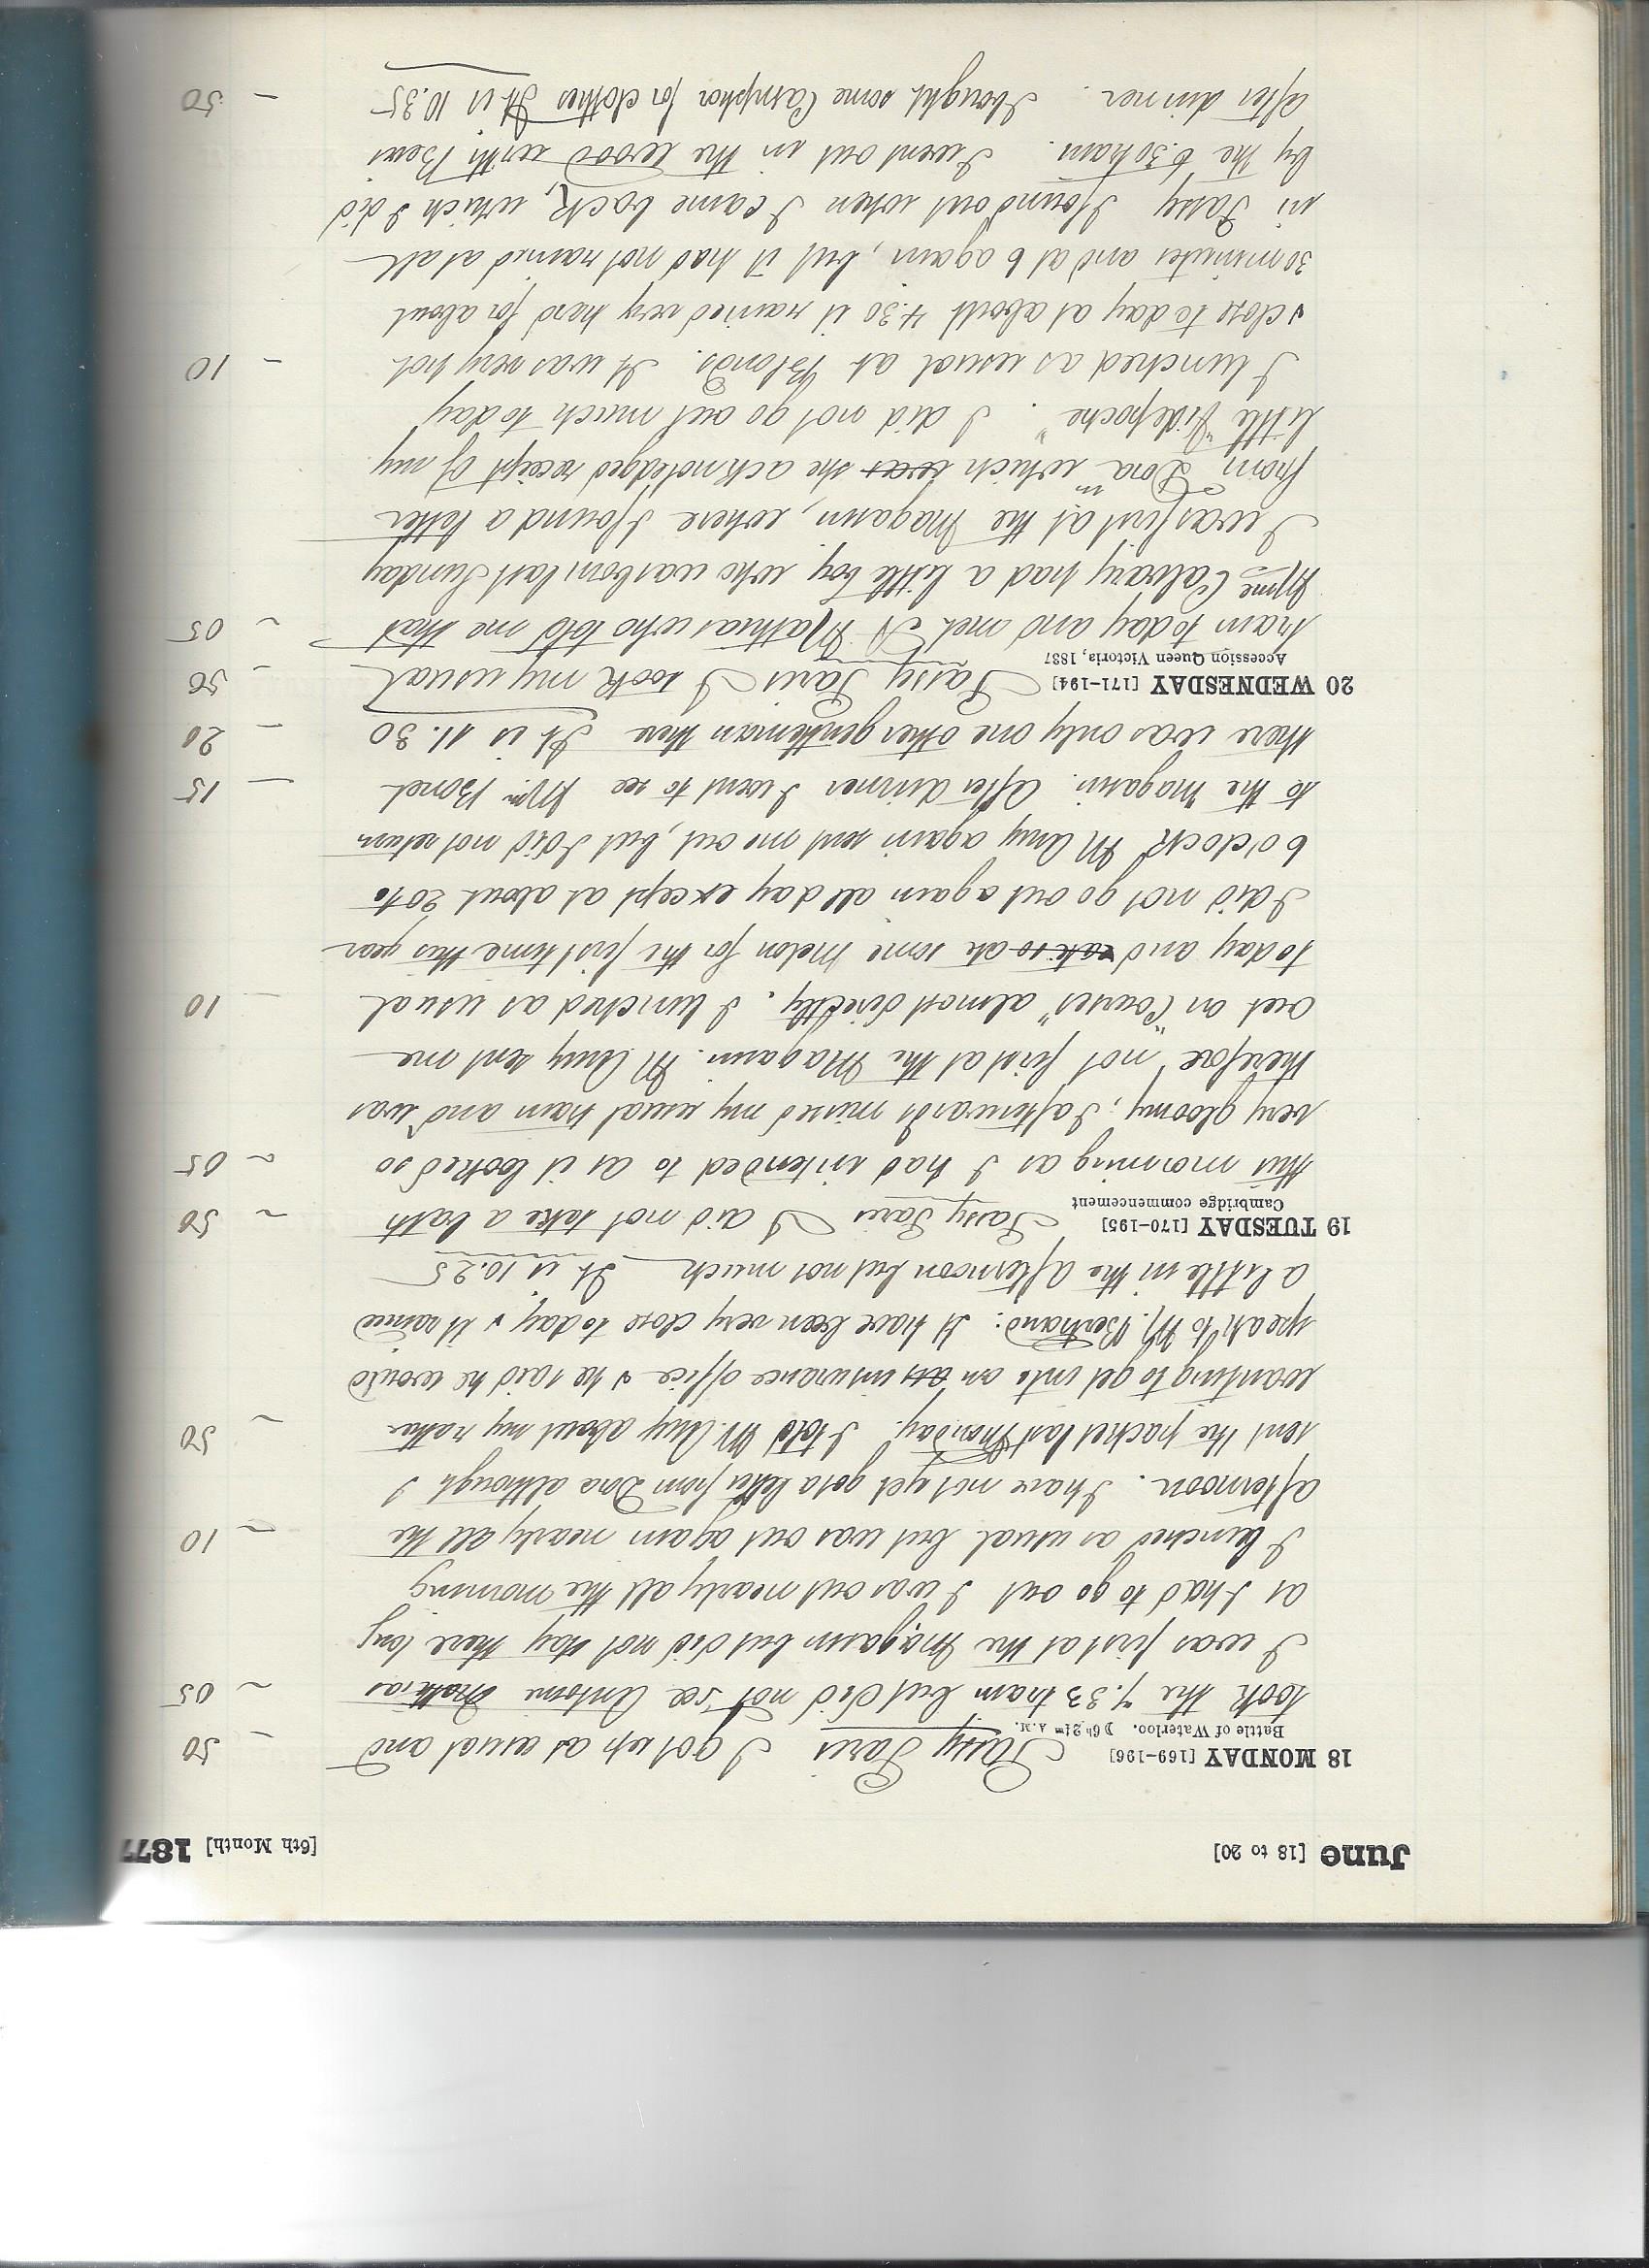 June [18 to 20] [6th Month] 1877
18 MONDAY [169-196] Passy Paris I got up as usual and - 50
Battle of Waterloo. ☽ 6h 21m A.M.
took the 7.33 tram but did not see Antoine Mathias ~ 05
I was first at the Magasin but did not stay there long
as I had to go out I was out nearly all the morning
I lunched as usual but was out again nearly all the ~ 10
afternoon. I have not yet got a letter from Dora although I
sent the packet last Monday. I told M. Auy about my rather ~ 50
wanting to get into an insurance office & he said he would
speak to M. Bertrand: It have been very close today & it rained
a little in the afternoon but not much It is 10.25
19 TUESDAY [170-195] Passy Paris I did not take a bath ~ 50
Cambridge commencement
this morning as I had intended to as it looked so ~ 05
very gloomy; I afterwards missed my usual tram and was
therefore not first at the Magasin. M Auy sent me
out on "Courses" almost directly. I lunched as usual - 10
today and ate some melon for the first time this year
I did not go out again all day except at about 20 to
6 o'clock M Auy again sent me out, but I did not return
to the Magasin. After dinner I went to see Mme Bonet - 15
there was only one other gentleman there It is 11.30 - 20
20 WEDNESDAY [171-194] Passy Paris I took my usual - 50
Accession Queen Victoria, 1837
tram today and met A Mathias who told me that ~ 05
Mme Calvary had a little boy who was born last Sunday
I was first at the Magasin, where I found a letter
from Dora in which she acknoledged receipt of my
little "Videpoche". I did not go out much today
I lunched as usual at Blonds. It was very hot - 10
& close today at about 4.30 it rained very hard for about
30 minutes and at 6 again, but it had not rained at all
in Passy I found out when I came back, which I did
by the 6.30 tram. I went out in the wood with Beni
after dinner. I bought some Camphor for clothes It is 10.35 - 50